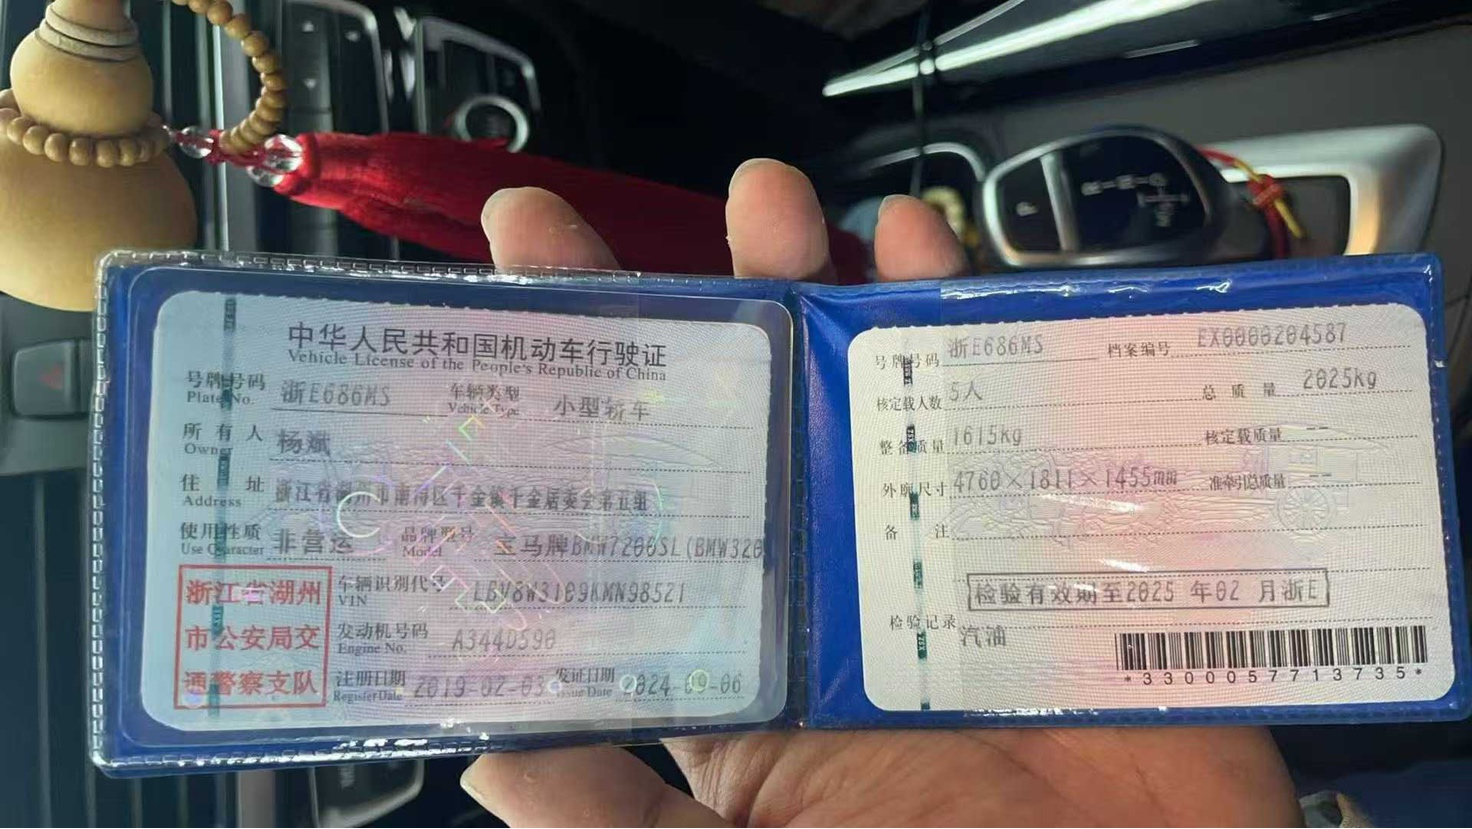 中华人民共和国机动车行驶证
Vehicle License of the People's Republic of China
号牌号码 浙E686MS 车辆类型 小型轿车
Plate No. Vehicle Type
所有人 杨斌
Owner
住址 浙江省湖州市南浔区千金镇千金居委会第五组
Address
使用性质 非营运 品牌型号 宝马牌BMW7200SL(BMW320
Use Character Model
浙江省湖州
市公安局交
通警察支队
车辆识别代号 LBV8W3109KMN98521
VIN
发动机号码 A344D590
Engine No.
注册日期 2019-02-03 发证日期 2024-09-06
Register Date Issue Date
号牌号码 浙E686MS 档案编号 EX0000204587
核定载人数 5人 总质量 2025kg
整备质量 1615kg 核定载质量 --
外廓尺寸 4760×1811×1455mm 准牵引总质量 --
备注
检验有效期至2025年02月浙E
检验记录
汽油
*3300057713735*
P